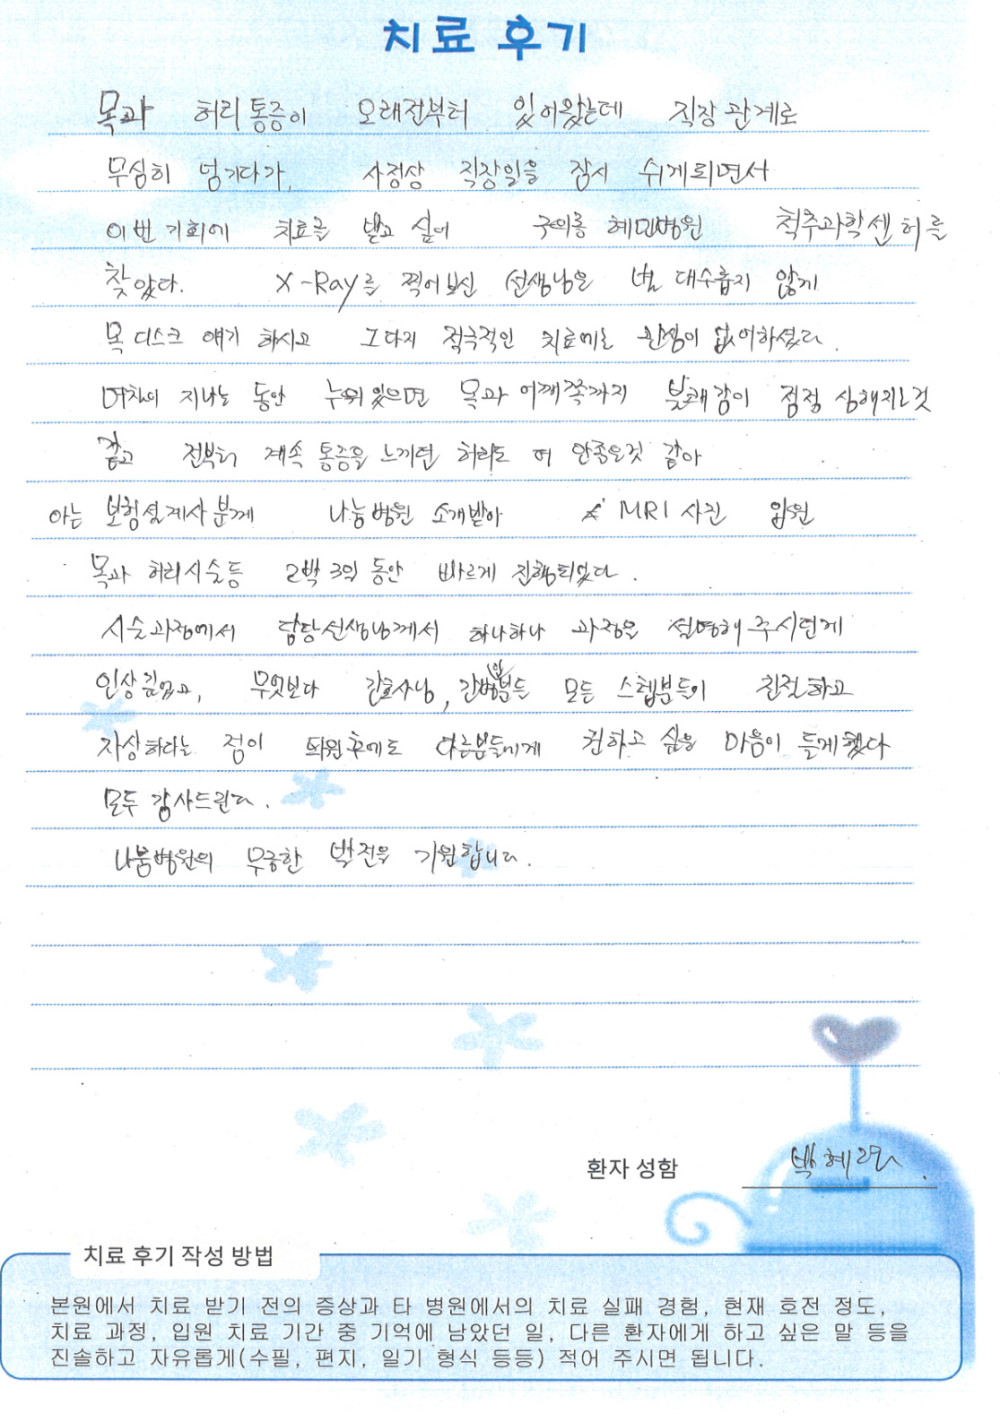 치료 후기
목과 허리통증이 오래전부터 있어왔는데 직장 관계로
무심히 넘기다가, 사정상 직장일을 잠시 쉬게되면서
이번 기회에 치료를 받고 싶어 구의동 혜민병원 척추과학센터를
찾았다. X-Ray를 찍어보신 선생님은 별 대수롭지 않게
목 디스크 얘기 하시고 그다지 적극적인 치료에는 관심이 없어하셨다.
며칠이 지나는 동안 누워있으면 목과 어깨쪽까지 불쾌감이 점점 심해지는것
같고 전부터 계속 통증을 느끼던 허리도 더 안좋은것 같아
아는 보험설계사분께 나눔병원 소개받아 MRI 사진 입원
목과 허리시술등 2박 3일 동안 빠르게 진행되었다.
시술과정에서 담당선생님께서 하나하나 과정을 설명해 주시던게
인상깊었고, 무엇보다 간호사님, 간병인분들 모든 스텝분들이 친절하고
자상하다는 점이 퇴원후에도 다른분들에게 권하고 싶을 마음이 들게했다
모두 감사드린다.
나눔병원의 무궁한 발전을 기원합니다.
환자 성함 박혜
치료 후기 작성 방법
본원에서 치료 받기 전의 증상과 타 병원에서의 치료 실패 경험, 현재 호전 정도,
치료 과정, 입원 치료 기간 중 기억에 남았던 일, 다른 환자에게 하고 싶은 말 등을
진솔하고 자유롭게(수필, 편지, 일기 형식 등등) 적어 주시면 됩니다.